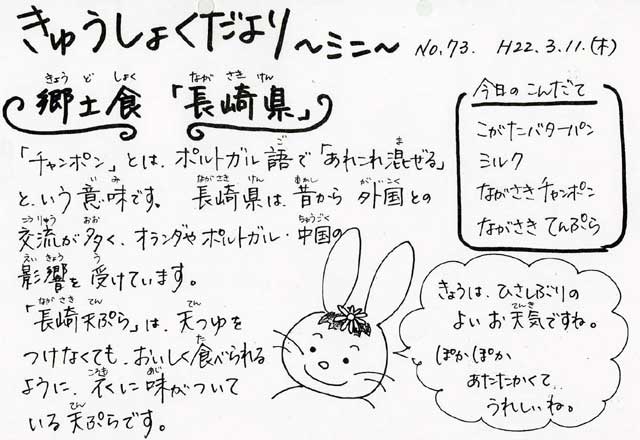 きゅうしょくだより ～ミニ～ No.73. H22.3.11.(木)
郷土食 「長崎県」
きょう ど しょく ながさきけん
今日のこんだて
こがたバターパン
ミルク
ながさきチャンポン
ながさきてんぷら
「チャンポン」とは、ポルトガル語で「あれこれ混ぜる」
という意味です。 長崎県は、昔から外国との
交流が多く、オランダやポルトガル・中国の
影響を受けています。
「長崎天ぷら」は、天つゆを
つけなくても、おいしく食べられる
ように、衣に味がついて
いる天ぷらです。
きょうは、ひさしぶりの
よいお天気ですね。
ぽかぽか
あたたかくて‥
うれしいね。